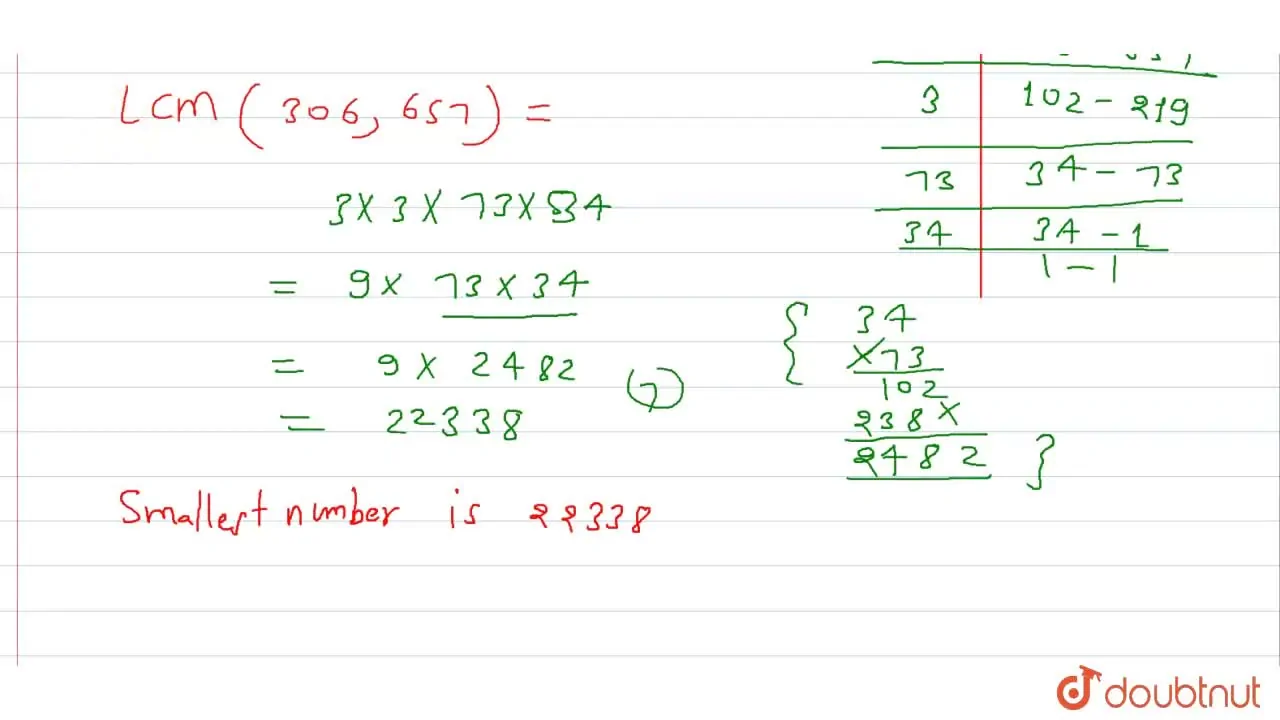 LCM (306, 657) =
3 X 3 X 73 X 34
= 9 X 73 X 34
= 9 X 2482
= 22338
7
Smallest number is 22338
3 | 102 - 219
73 | 34 - 73
34 | 34 - 1
1 - 1
{ 34
X 73
102
238 X
2482 }
doubtnut